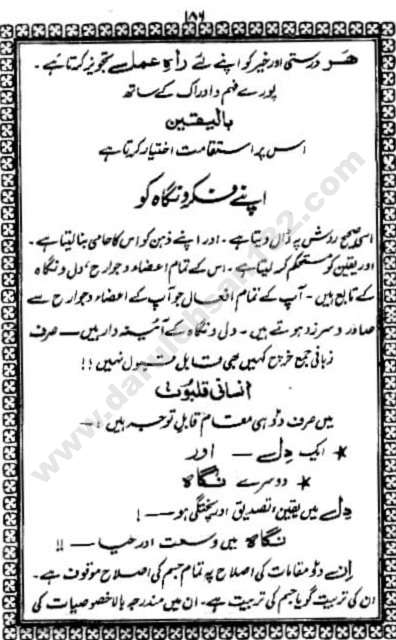 ۱۸۶
ہَر درستی اور خیر کو اپنے لئے راہِ عمل سے تجویز کرتا ہے۔
پورے فہم و ادراک کے ساتھ
بالیقین
اس پر استقامت اختیار کرتا ہے
اپنے فکر و نگاہ کو
اسی صحیح روش پر ڈال دیتا ہے۔ اور اپنے ذہن کو اس کا حامی بنا لیتا ہے۔
اور یقین کو مستحکم کر لیتا ہے۔ اس کے تمام اعضاء و جوارح، دل و نگاہ
کے تابع ہیں۔ آپ کے تمام افعال جو آپ کے اعضاء و جوارح سے
صادر و سرزد ہوتے ہیں۔ دل و نگاہ کے آئینہ دار ہیں — صرف
زبانی جمع خرچ کہیں بھی قابلِ قبول نہیں !!
انسانی قلبُوت
میں صرف دو ہی مقام قابلِ توجہ ہیں :—
★ ایک دِل — اور
★ دوسرے نگاہ
دِل میں یقین، تصدیق اور پختگی ہو — !
نگاہ میں وسعت اور حیا — !!
اِن دو مقامات کی اصلاح پہ تمام جسم کی اصلاح موقوف ہے۔
ان کی تربیت گویا جسم کی تربیت ہے۔ ان میں مندرجہ بالا خصوصیات کی
www.darulehsan132.com